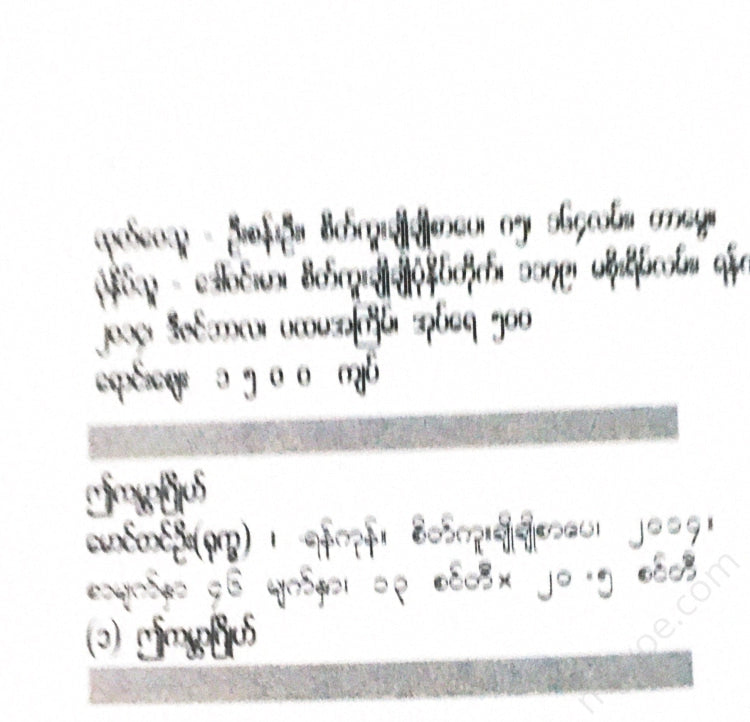 ထုတ်ဝေသူ - ဦးစန်းဦး၊ စိတ်ကူးချိုချိုစာပေ၊ ၈၅၊ ၁၆၄လမ်း၊ တာမွေ။
ပုံနှိပ်သူ - ဒေါ်ဝင်းမာ၊ စိတ်ကူးချိုချိုပုံနှိပ်တိုက်၊ ၁၁၇၉၊ မစိုးရိမ်လမ်း၊
၂၀၁၄၊ ဒီဇင်ဘာလ၊ ပထမအကြိမ်၊ အုပ်ရေ ၅၀၀
ရောင်းဈေး ၁ ၅ ၀ ၀ ကျပ်
ဤကမ္ဘာမြို့ဟ်
မောင်တင်ဦး(ဒုက္ခ) ၊ ရန်ကုန်။ စိတ်ကူးချိုချိုစာပေ၊ ၂၀၁၄။
စာမျက်နှာ ၄၆ မျက်နှာ၊ ၁၃ စင်တီ × ၂၀ .၅ စင်တီ
(၁) ဤကမ္ဘာမြို့ဟ်